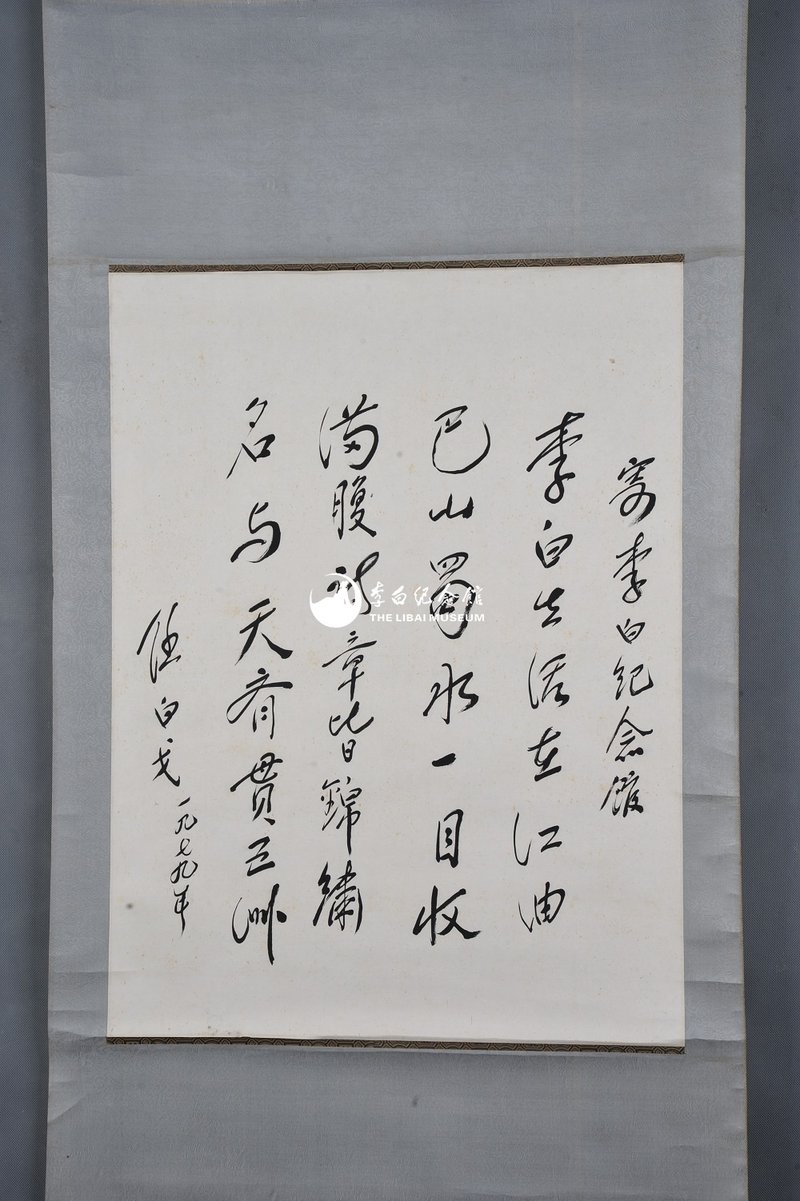 寄李白纪念馆
李白生活在江油
巴山蜀水一目收
满腹诗章皆錦繡
名与天齐贯五洲
任白戈 一九七九年
李白纪念馆
THE LIBAI MUSEUM